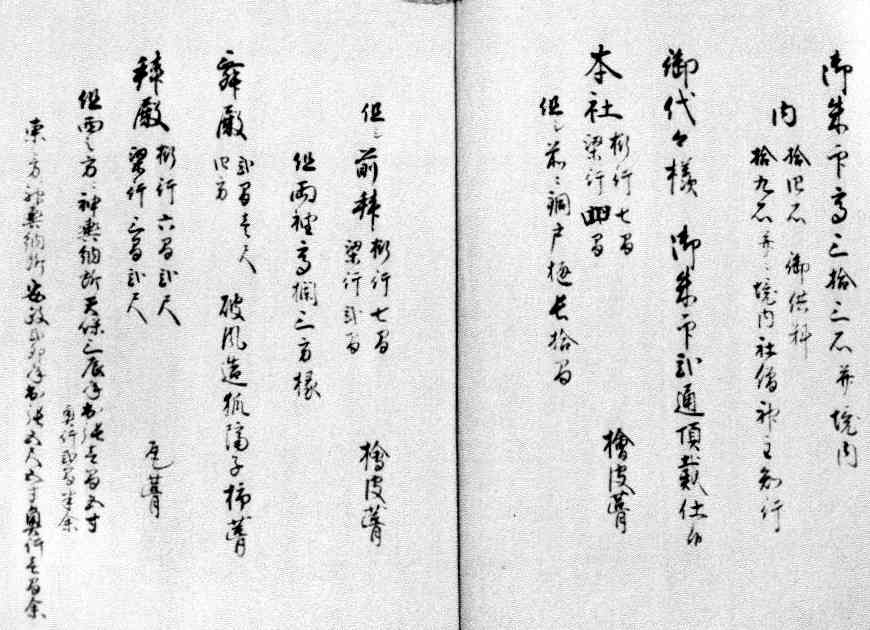 御朱印高三拾三石并境内
内 拾四石 御供料
拾九石并ニ境内社僧神主知行
御代々様 御朱印弐通頂戴仕候
本社 桁行七間
梁行四間 檜皮葺
但シ前ニ銅戸樋長拾間
但シ前拝 桁行七間
梁行弐間 檜皮葺
但両袖高欄三方椽
舞殿 弐間壱尺
四方 破風造狐隔子柿葺
拝殿 桁行六間弐尺
梁行三間弐尺 瓦葺
但西之方ニ神輿納所天保三辰年出張壱間五寸
奥行弐間半余
東之方神輿納所安政弐卯年出張五尺五寸奥行壱間余